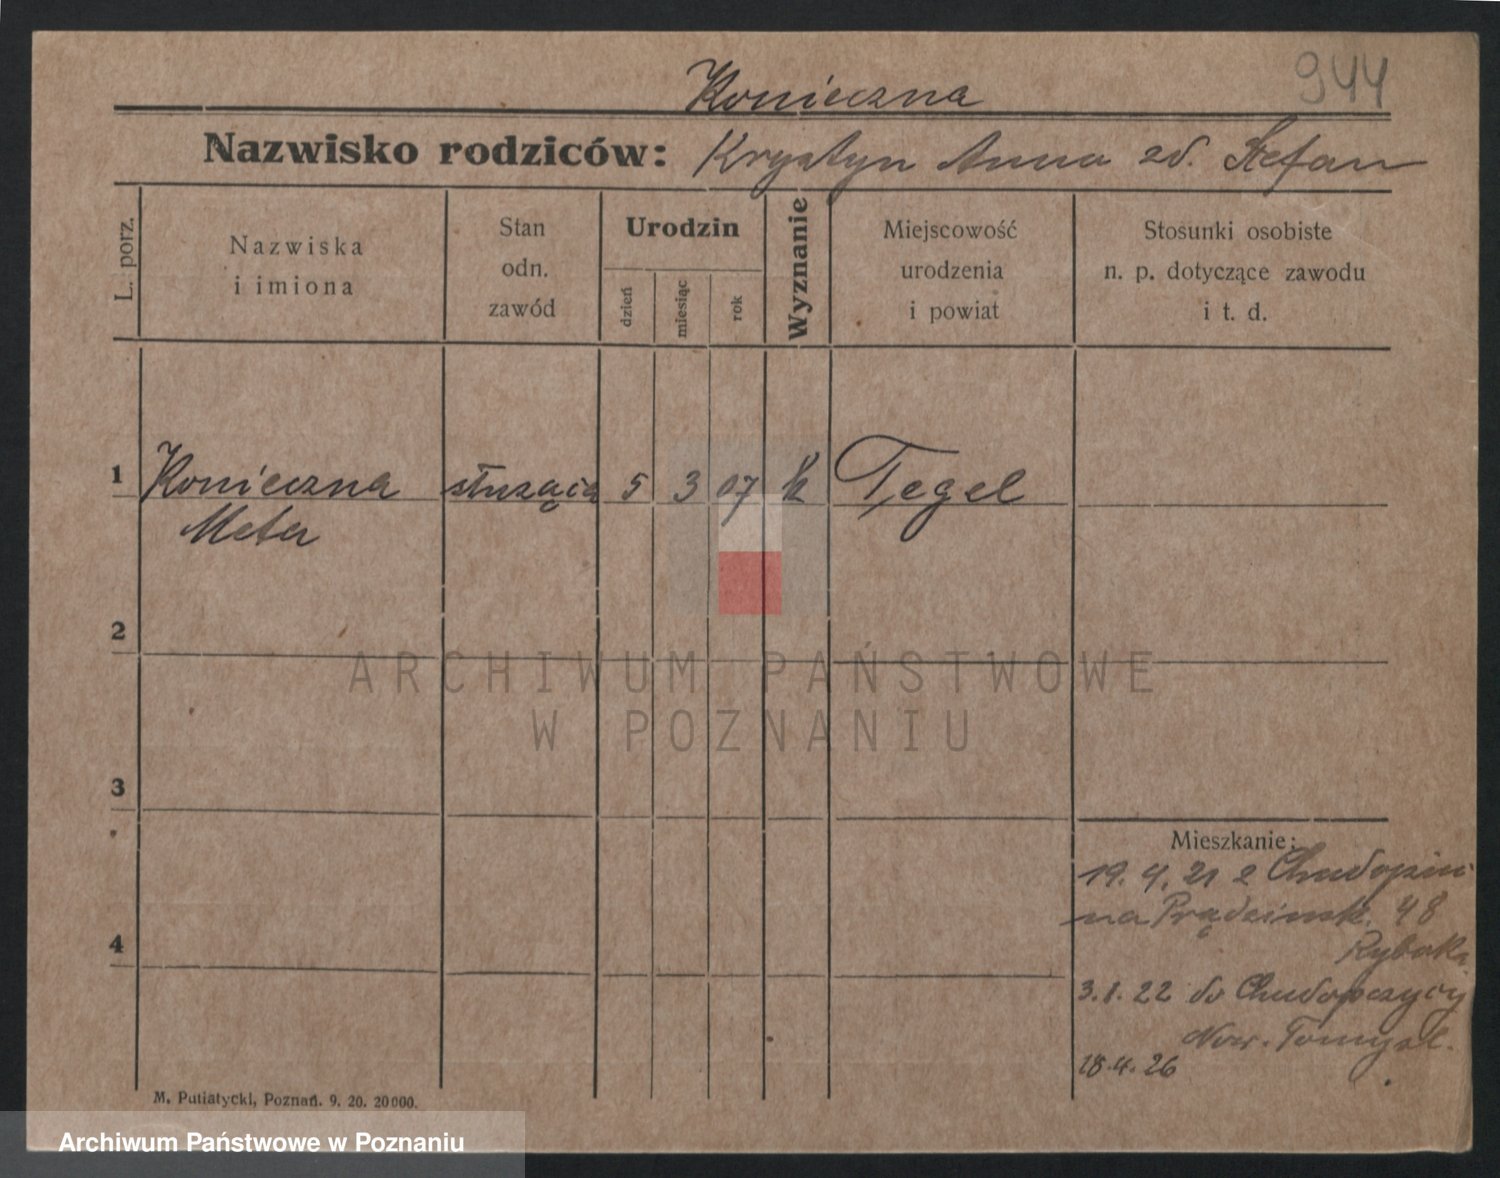 944
Konieczna
Nazwisko rodziców: Krystyn Anna zd. Stefan
L. porz.
Nazwiska
i imiona
Stan
odn.
zawód
Urodzin
dzień
miesiąc
rok
Wyznanie
Miejscowość
urodzenia
i powiat
Stosunki osobiste
n. p. dotyczące zawodu
i t. d.
1 Konieczna służąca 5 3 07 k Tegel
Meta
2
3
4
Mieszkanie:
19. 4. 21 z
na Prądzińsk. 48
3.1.22 do Chudopczycy
Now. Tomysl.
18.4.26
M. Putiatycki, Poznań. 9. 20. 20000.
ARCHIWUM PAŃSTWOWE
W POZNANIU
Archiwum Państwowe w Poznaniu